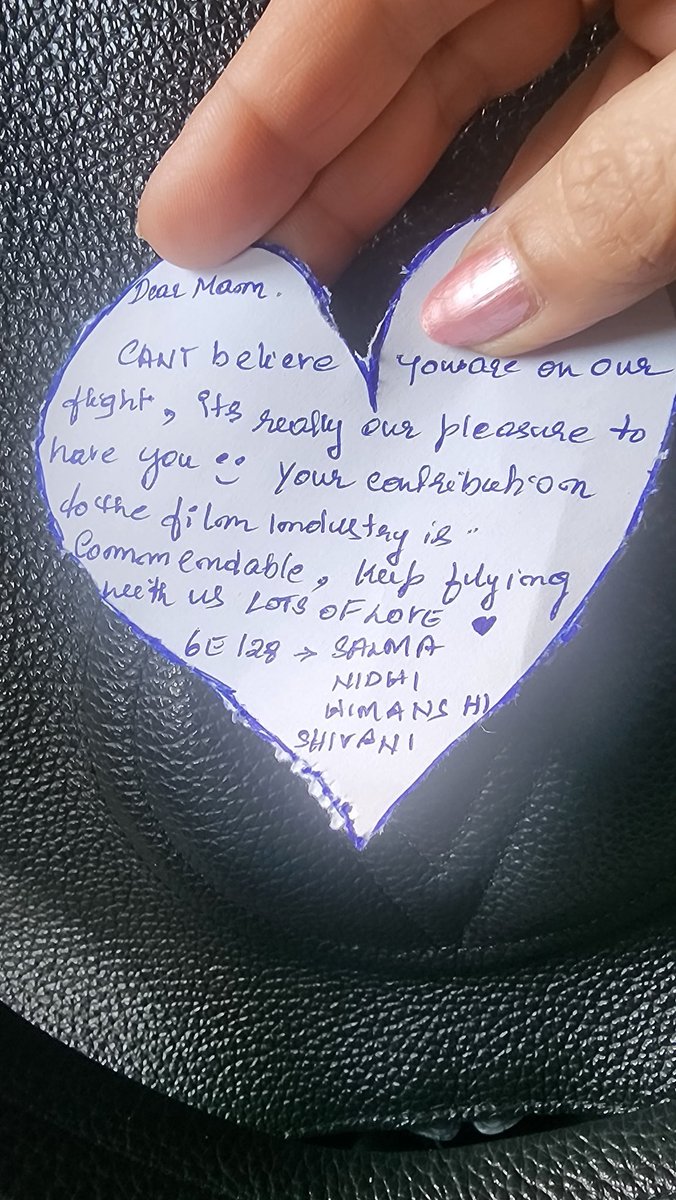 Dear Mam.
CANT believe you are on our
flight, its really our pleasure to
have you :) Your contribution
to the film Industry is
Commendable, Keep flying
with us LOTS OF LOVE ♥
6E 128 → SALMA
NIDHI
HIMANSHI
SHIVANI